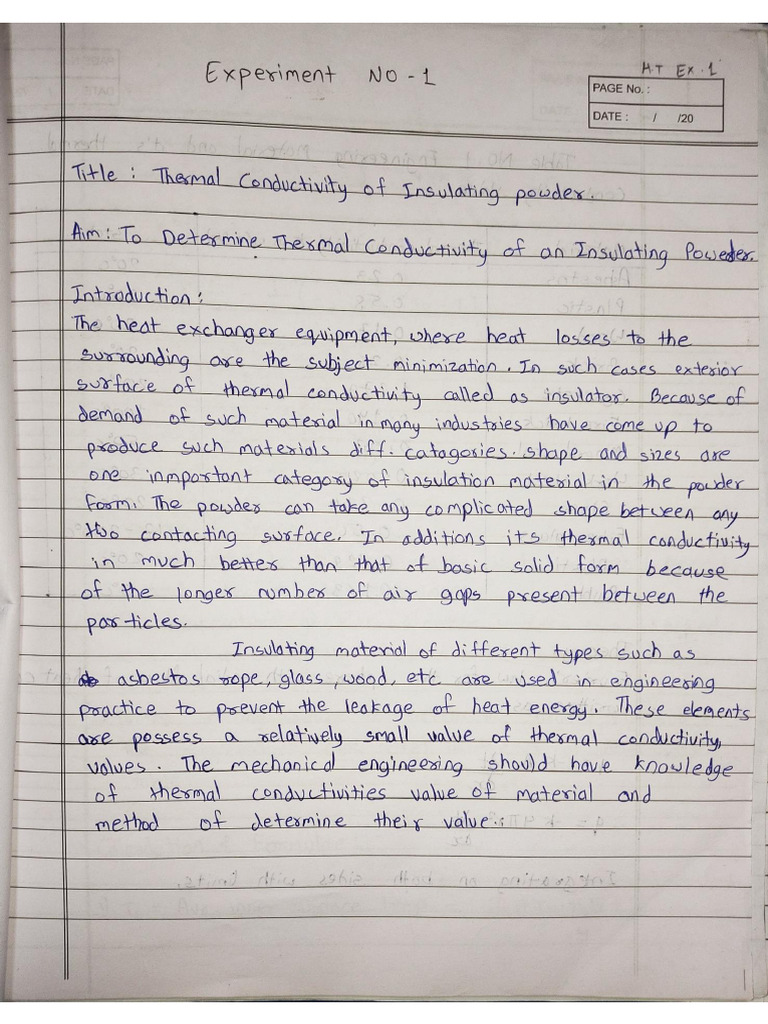 HT Ex.1
Experiment NO-1
PAGE No. :
DATE : / /20
Title : Thermal Conductivity of Insulating powder.
Aim: To Determine Thermal Conductivity of an Insulating Poweder.
Introduction:
The heat exchanger equipment, where heat losses to the
surrounding are the subject minimization. In such cases exterior
surface of thermal conductivity called as insulator. Because of
demand of such material in many industries have come up to
produce such materials diff. catagories. shape and sizes are
one inmportant category of insulation material in the powder
form. The powder can take any complicated shape between any
two contacting surface. In additions its thermal conductivity
in much better than that of basic solid form because
of the longer number of air gaps present between the
particles.
Insulating material of different types such as
asbestos rope, glass, wood, etc are used in engineering
practice to prevent the leakage of heat energy. These elements
are possess a relatively small value of thermal conductivity,
values. The mechanical engineering should have knowledge
of thermal conductivities value of material and
method of determine their value.